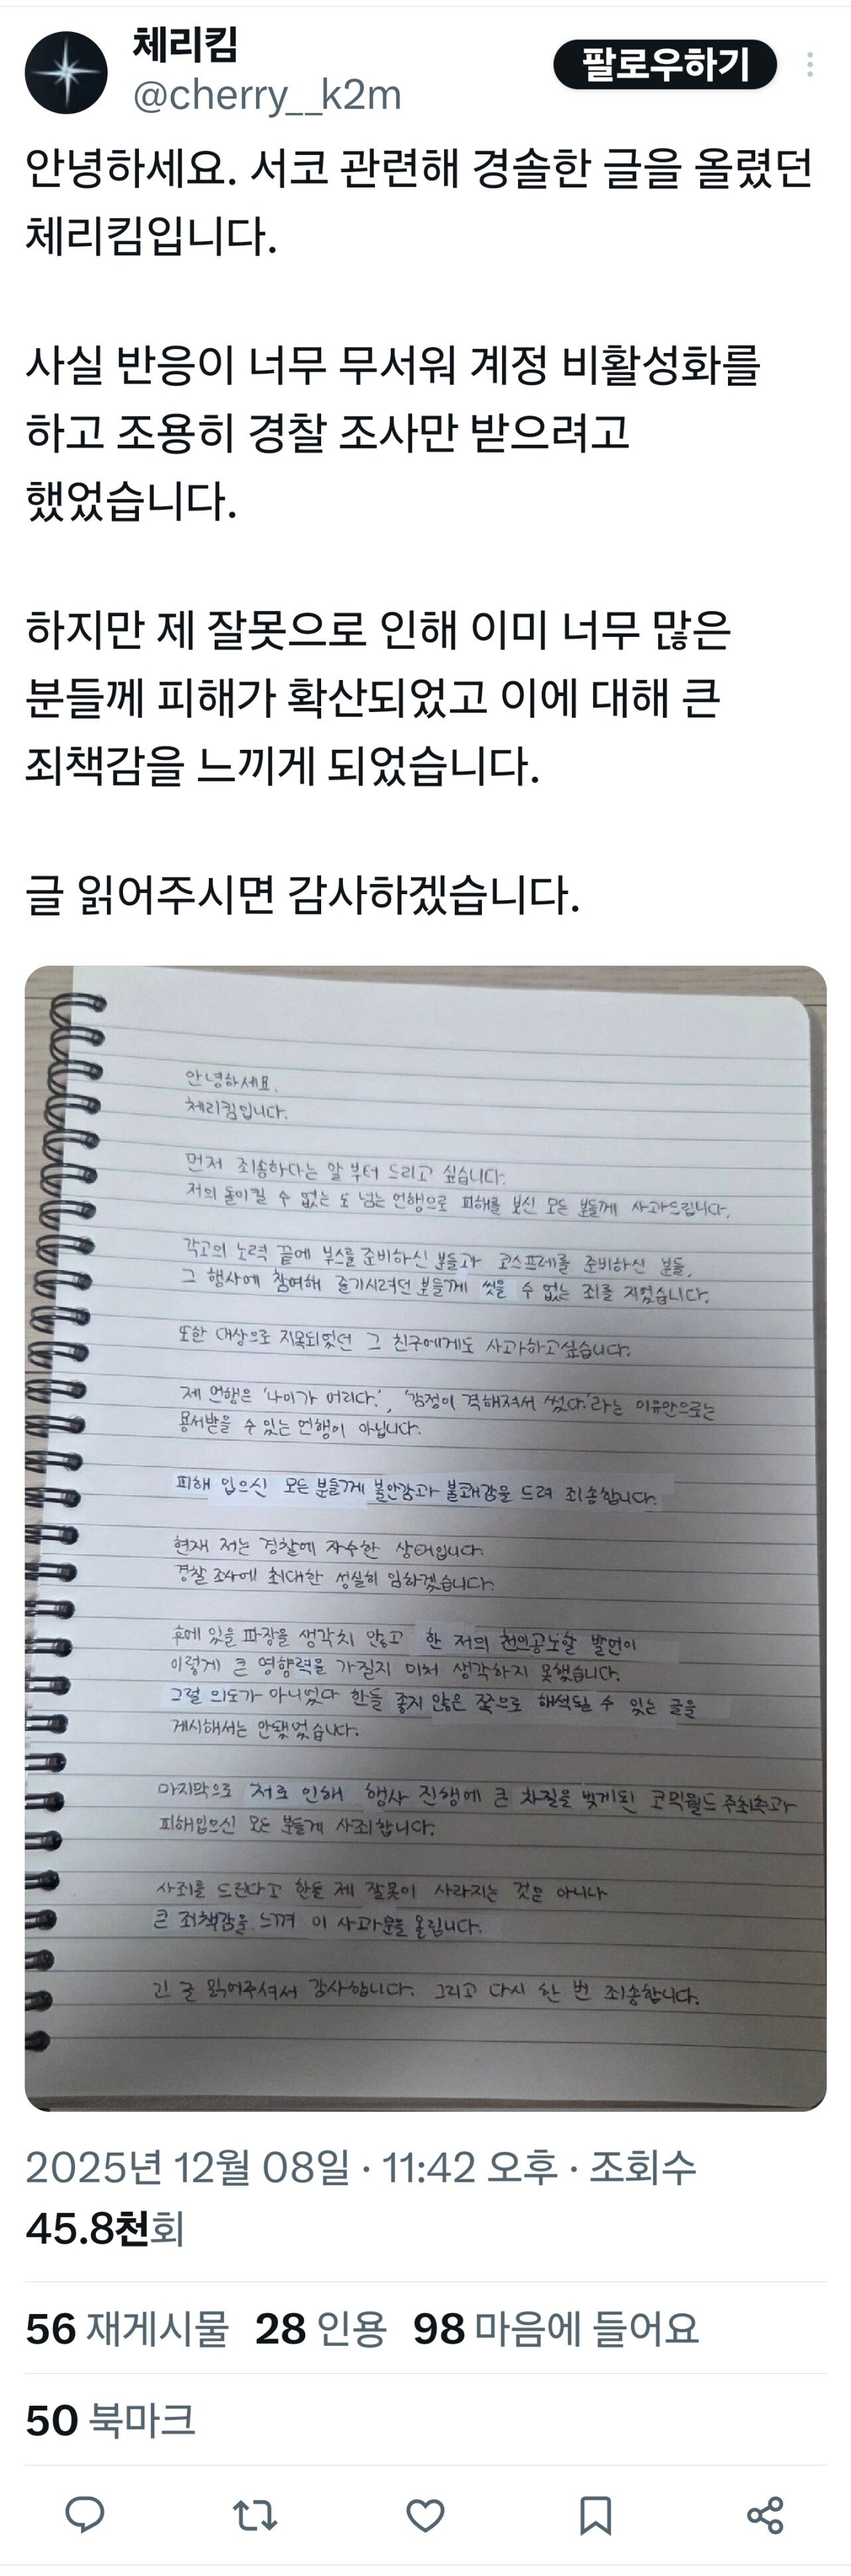 체리킴
@cherry__k2m
팔로우하기
안녕하세요. 서코 관련해 경솔한 글을 올렸던
체리킴입니다.
사실 반응이 너무 무서워 계정 비활성화를
하고 조용히 경찰 조사만 받으려고
했었습니다.
하지만 제 잘못으로 인해 이미 너무 많은
분들께 피해가 확산되었고 이에 대해 큰
죄책감을 느끼게 되었습니다.
글 읽어주시면 감사하겠습니다.
안녕하세요.
체리킴입니다.
먼저 죄송하다는 말 부터 드리고 싶습니다.
저의 돌이킬 수 없는 도 넘는 언행으로 피해를 보신 모든 분들께 사과드립니다.
각고의 노력 끝에 부스를 준비하신 분들과 코스프레를 준비하신 분들,
그 행사에 참여해 즐기시려던 분들께 씻을 수 없는 죄를 지었습니다.
또한 대상으로 지목되었던 그 친구에게도 사과하고싶습니다.
제 언행은 '나이가 어리다.', '감정이 격해져서 썼다.'라는 이유만으로는
용서받을 수 있는 언행이 아닙니다.
피해 입으신 모든 분들께 불안감과 불쾌감을 드려 죄송합니다.
현재 저는 경찰에 자수한 상태입니다.
경찰 조사에 최대한 성실히 임하겠습니다.
후에 있을 파장을 생각치 않고 한 저의 천인공노할 발언이
이렇게 큰 영향력을 가질지 미처 생각하지 못했습니다.
그럴 의도가 아니었다 한들 좋지 않은 쪽으로 해석될 수 있는 글을
게시해서는 안됐었습니다.
마지막으로 저로 인해 행사 진행에 큰 차질을 빚게된 코믹월드 주최측과
피해입으신 모든 분들께 사죄합니다.
사죄를 드린다고 한들 제 잘못이 사라지는 것은 아니나
큰 죄책감을 느껴 이 사과문을 올립니다.
긴 글 읽어주셔서 감사합니다. 그리고 다시 한 번 죄송합니다.
2025년 12월 08일 · 11:42 오후 · 조회수
45.8천회
56 재게시물 28 인용 98 마음에 들어요
50 북마크